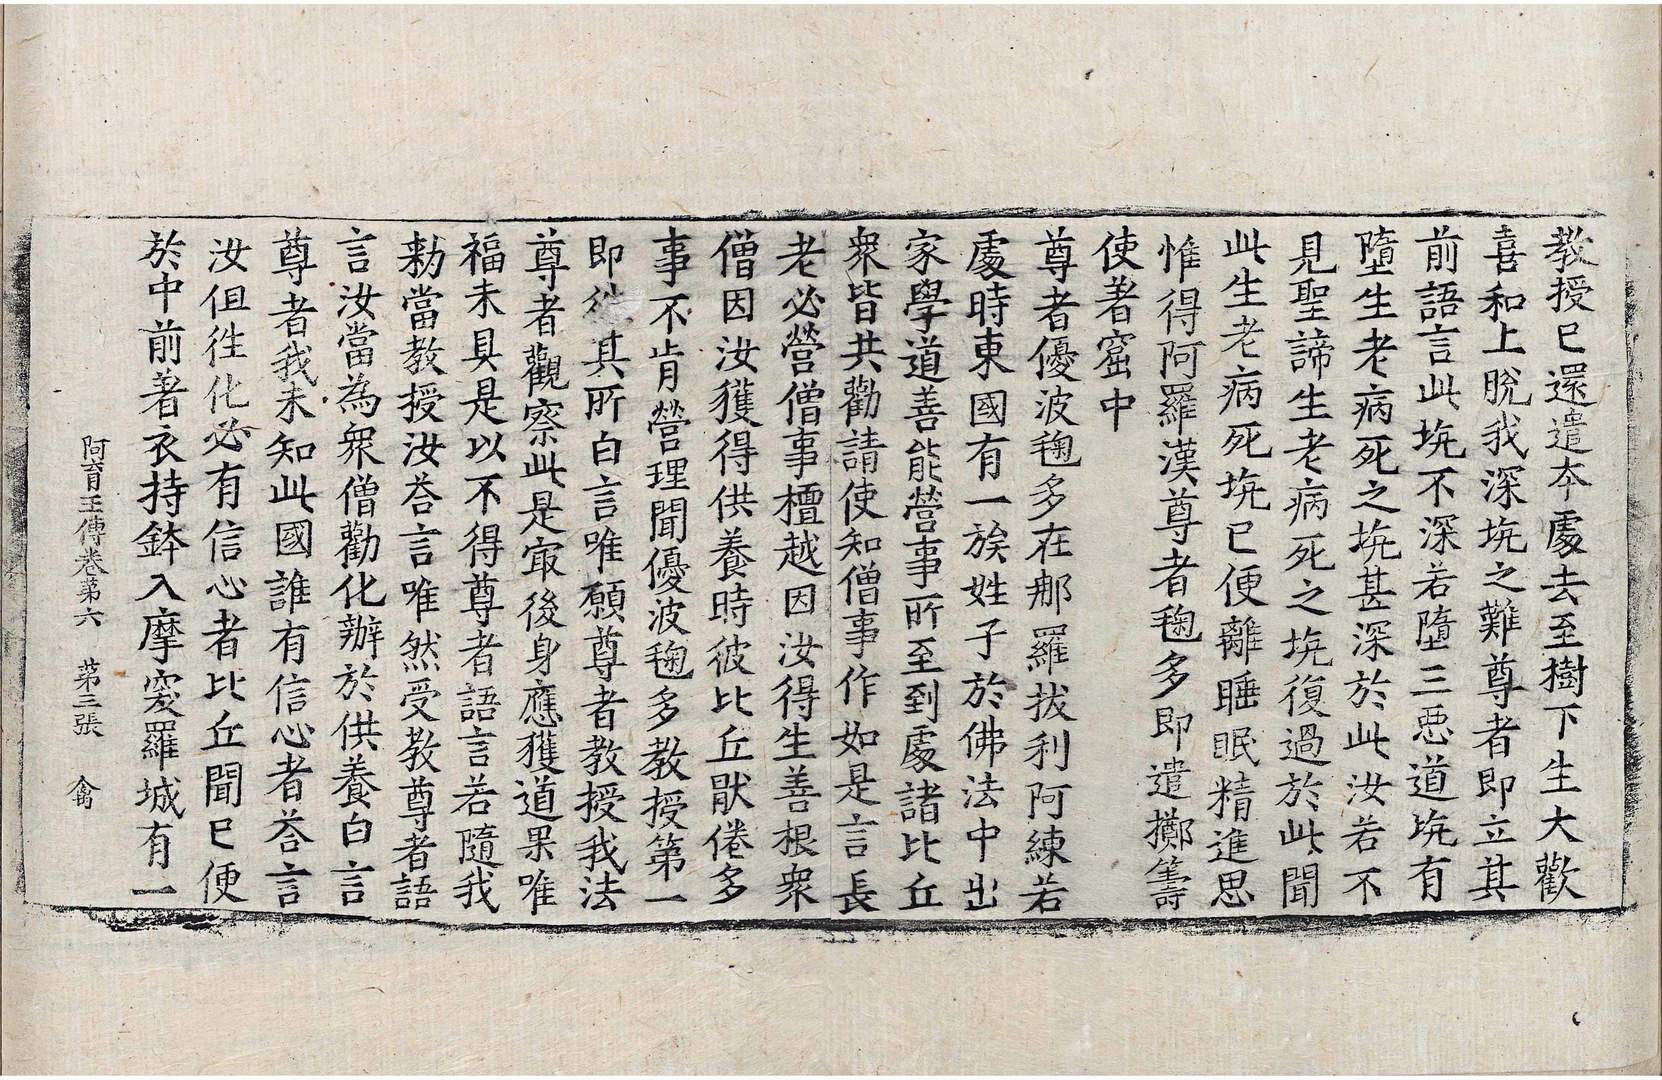 教授已還遣本處去至樹下生大歡
喜和上脫我深坑之難尊者即立其
前語言此坑不深若墮三惡道坑有
墮生老病死之坑甚深於此汝若不
見聖諦生老病死之坑復過於此聞
此生老病死坑已便離睡眠精進思
惟得阿羅漢尊者毱多即遣擲籌
使著窟中
尊者優波毱多在那羅拔利阿練若
處時東國有一族姓子於佛法中出
家學道善能營事所至到處諸比丘
衆皆共勸請使知僧事作如是言長
老必營僧事檀越因汝得生善根衆
僧因汝獲得供養時彼比丘猒倦多
事不肯營理聞優波毱多教授第一
即徃其所白言唯願尊者教授我法
尊者觀察此是冣後身應獲道果唯
福未具是以不得尊者語言若隨我
勑當教授汝荅言唯然受教尊者語
言汝當為衆僧勸化辦於供養白言
尊者我未知此國誰有信心者荅言
汝但徃化必有信心者比丘聞已便
於中前著衣持鉢入摩突羅城有一
阿育王傳卷第六 第三張 禽